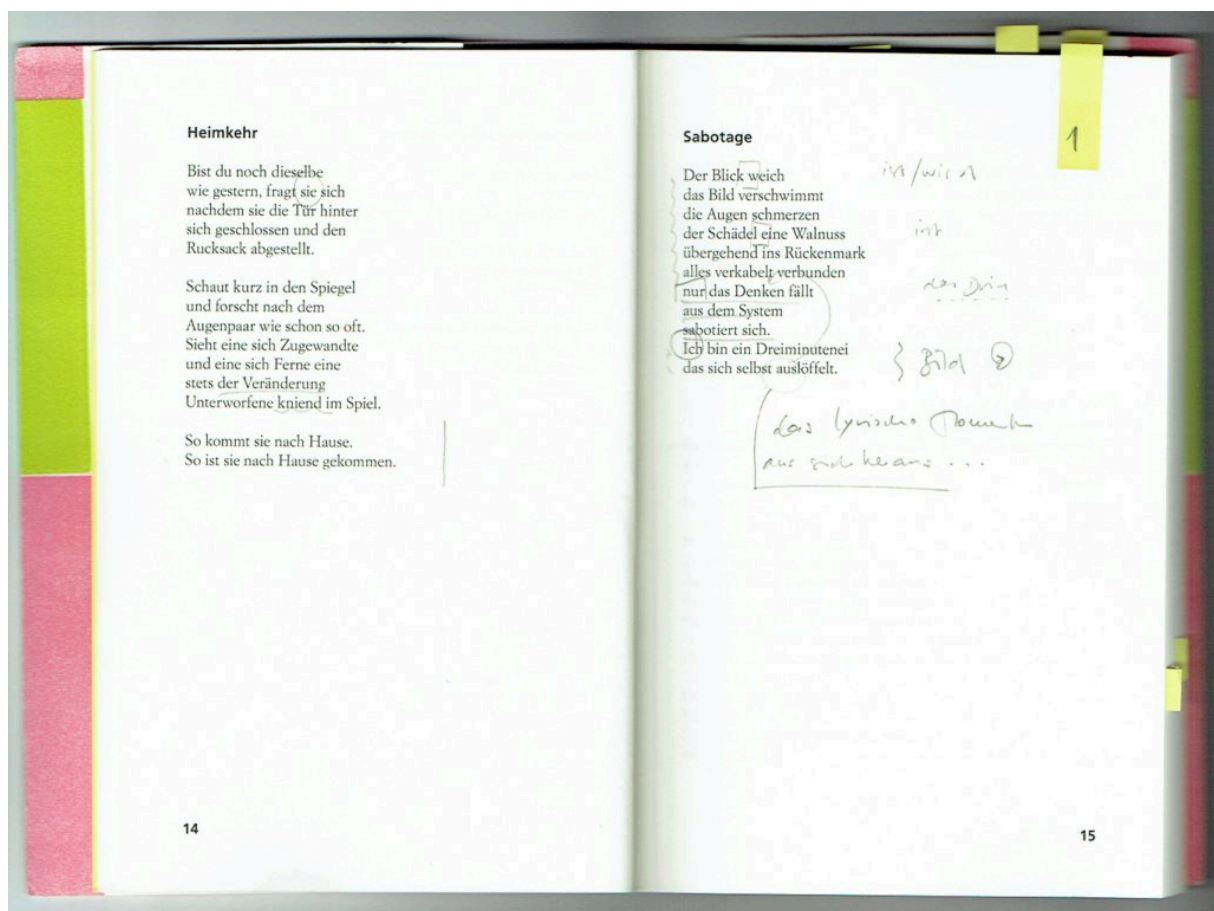 Heimkehr
Bist du noch dieselbe
wie gestern, fragt sie sich
nachdem sie die Tür hinter
sich geschlossen und den
Rucksack abgestellt.
Schaut kurz in den Spiegel
und forscht nach dem
Augenpaar wie schon so oft.
Sieht eine sich Zugewandte
und eine sich Ferne eine
stets der Veränderung
Unterworfene kniend im Spiel.
So kommt sie nach Hause.
So ist sie nach Hause gekommen.
14
1
Sabotage
Der Blick weich
ist/wird
das Bild verschwimmt
die Augen schmerzen
der Schädel eine Walnuss
ist
übergehend ins Rückenmark
alles verkabelt verbunden
nur das Denken fällt
aus dem System
sabotiert sich.
Ich bin ein Dreiminutenei
das sich selbst auslöffelt.
Bild
das lyrische Moment
aus sich heraus ...
15